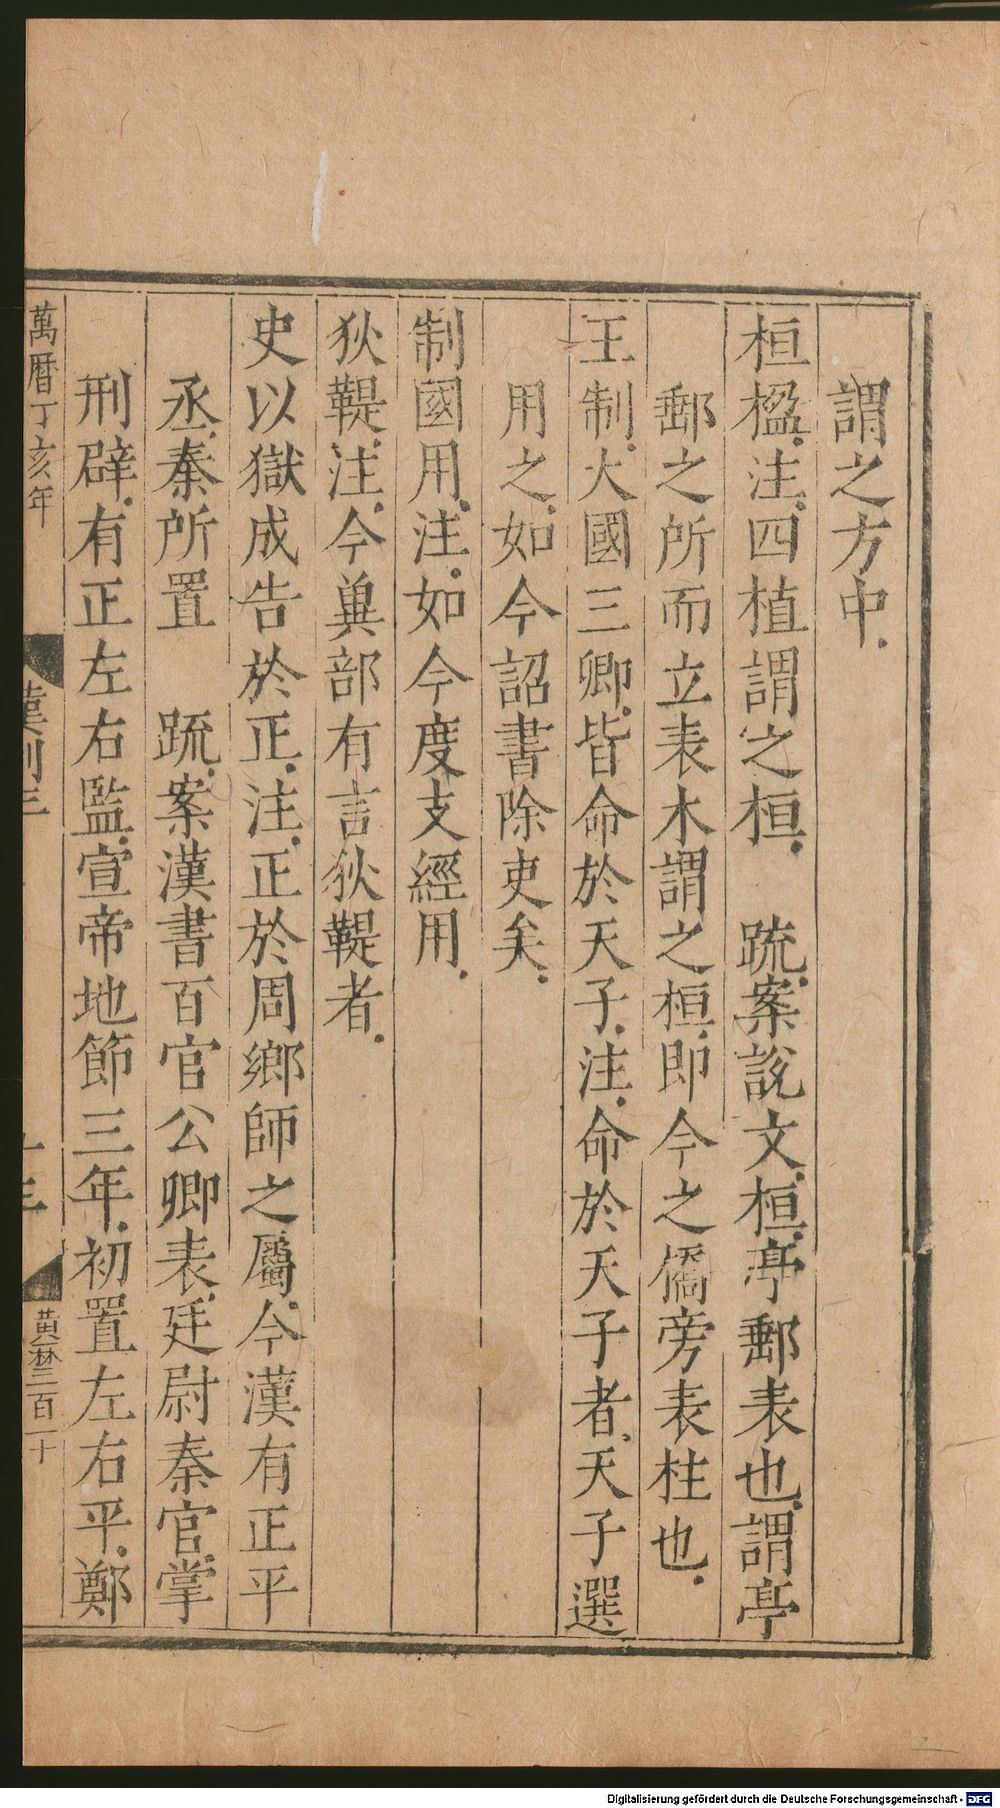 謂之方中.
桓楹.注.四植謂之桓.　疏.案說文.桓.亭郵表也.謂亭
郵之所而立表木謂之桓.即今之僑旁表柱也.
王制.大國三卿.皆命於天子.注.命於天子者.天子選
用之.如今詔書除吏矣.
制國用.注.如今度支經用.
狄鞮.注.今兾部有言狄鞮者.
史以獄成告於正.注.正於周鄉師之屬.今漢有正平
丞.秦所置　疏.案漢書百官公卿表.廷尉秦官.掌
刑辟.有正左右監.宣帝地節三年.初置左右平.鄭
萬曆丁亥年
黄一林三百一十
Digitalisierung gefördert durch die Deutsche Forschungsgemeinschaft - DFG